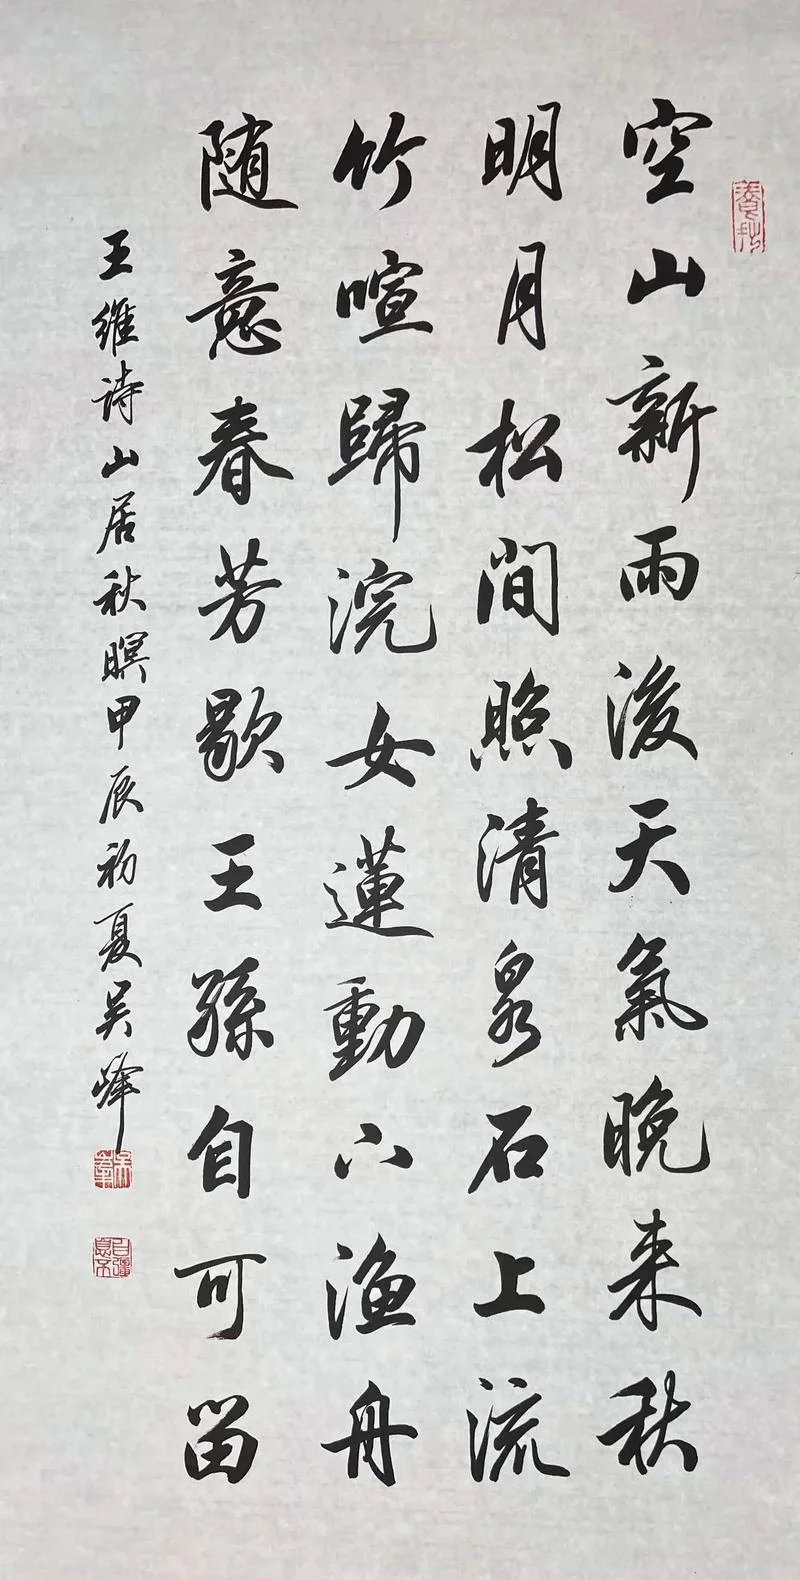 空山新雨後天氣晚来秋
明月松間照清泉石上流
竹喧歸浣女蓮動下渔舟
随意春芳歇王孫自可留
王維诗山居秋暝甲辰初夏吴峰